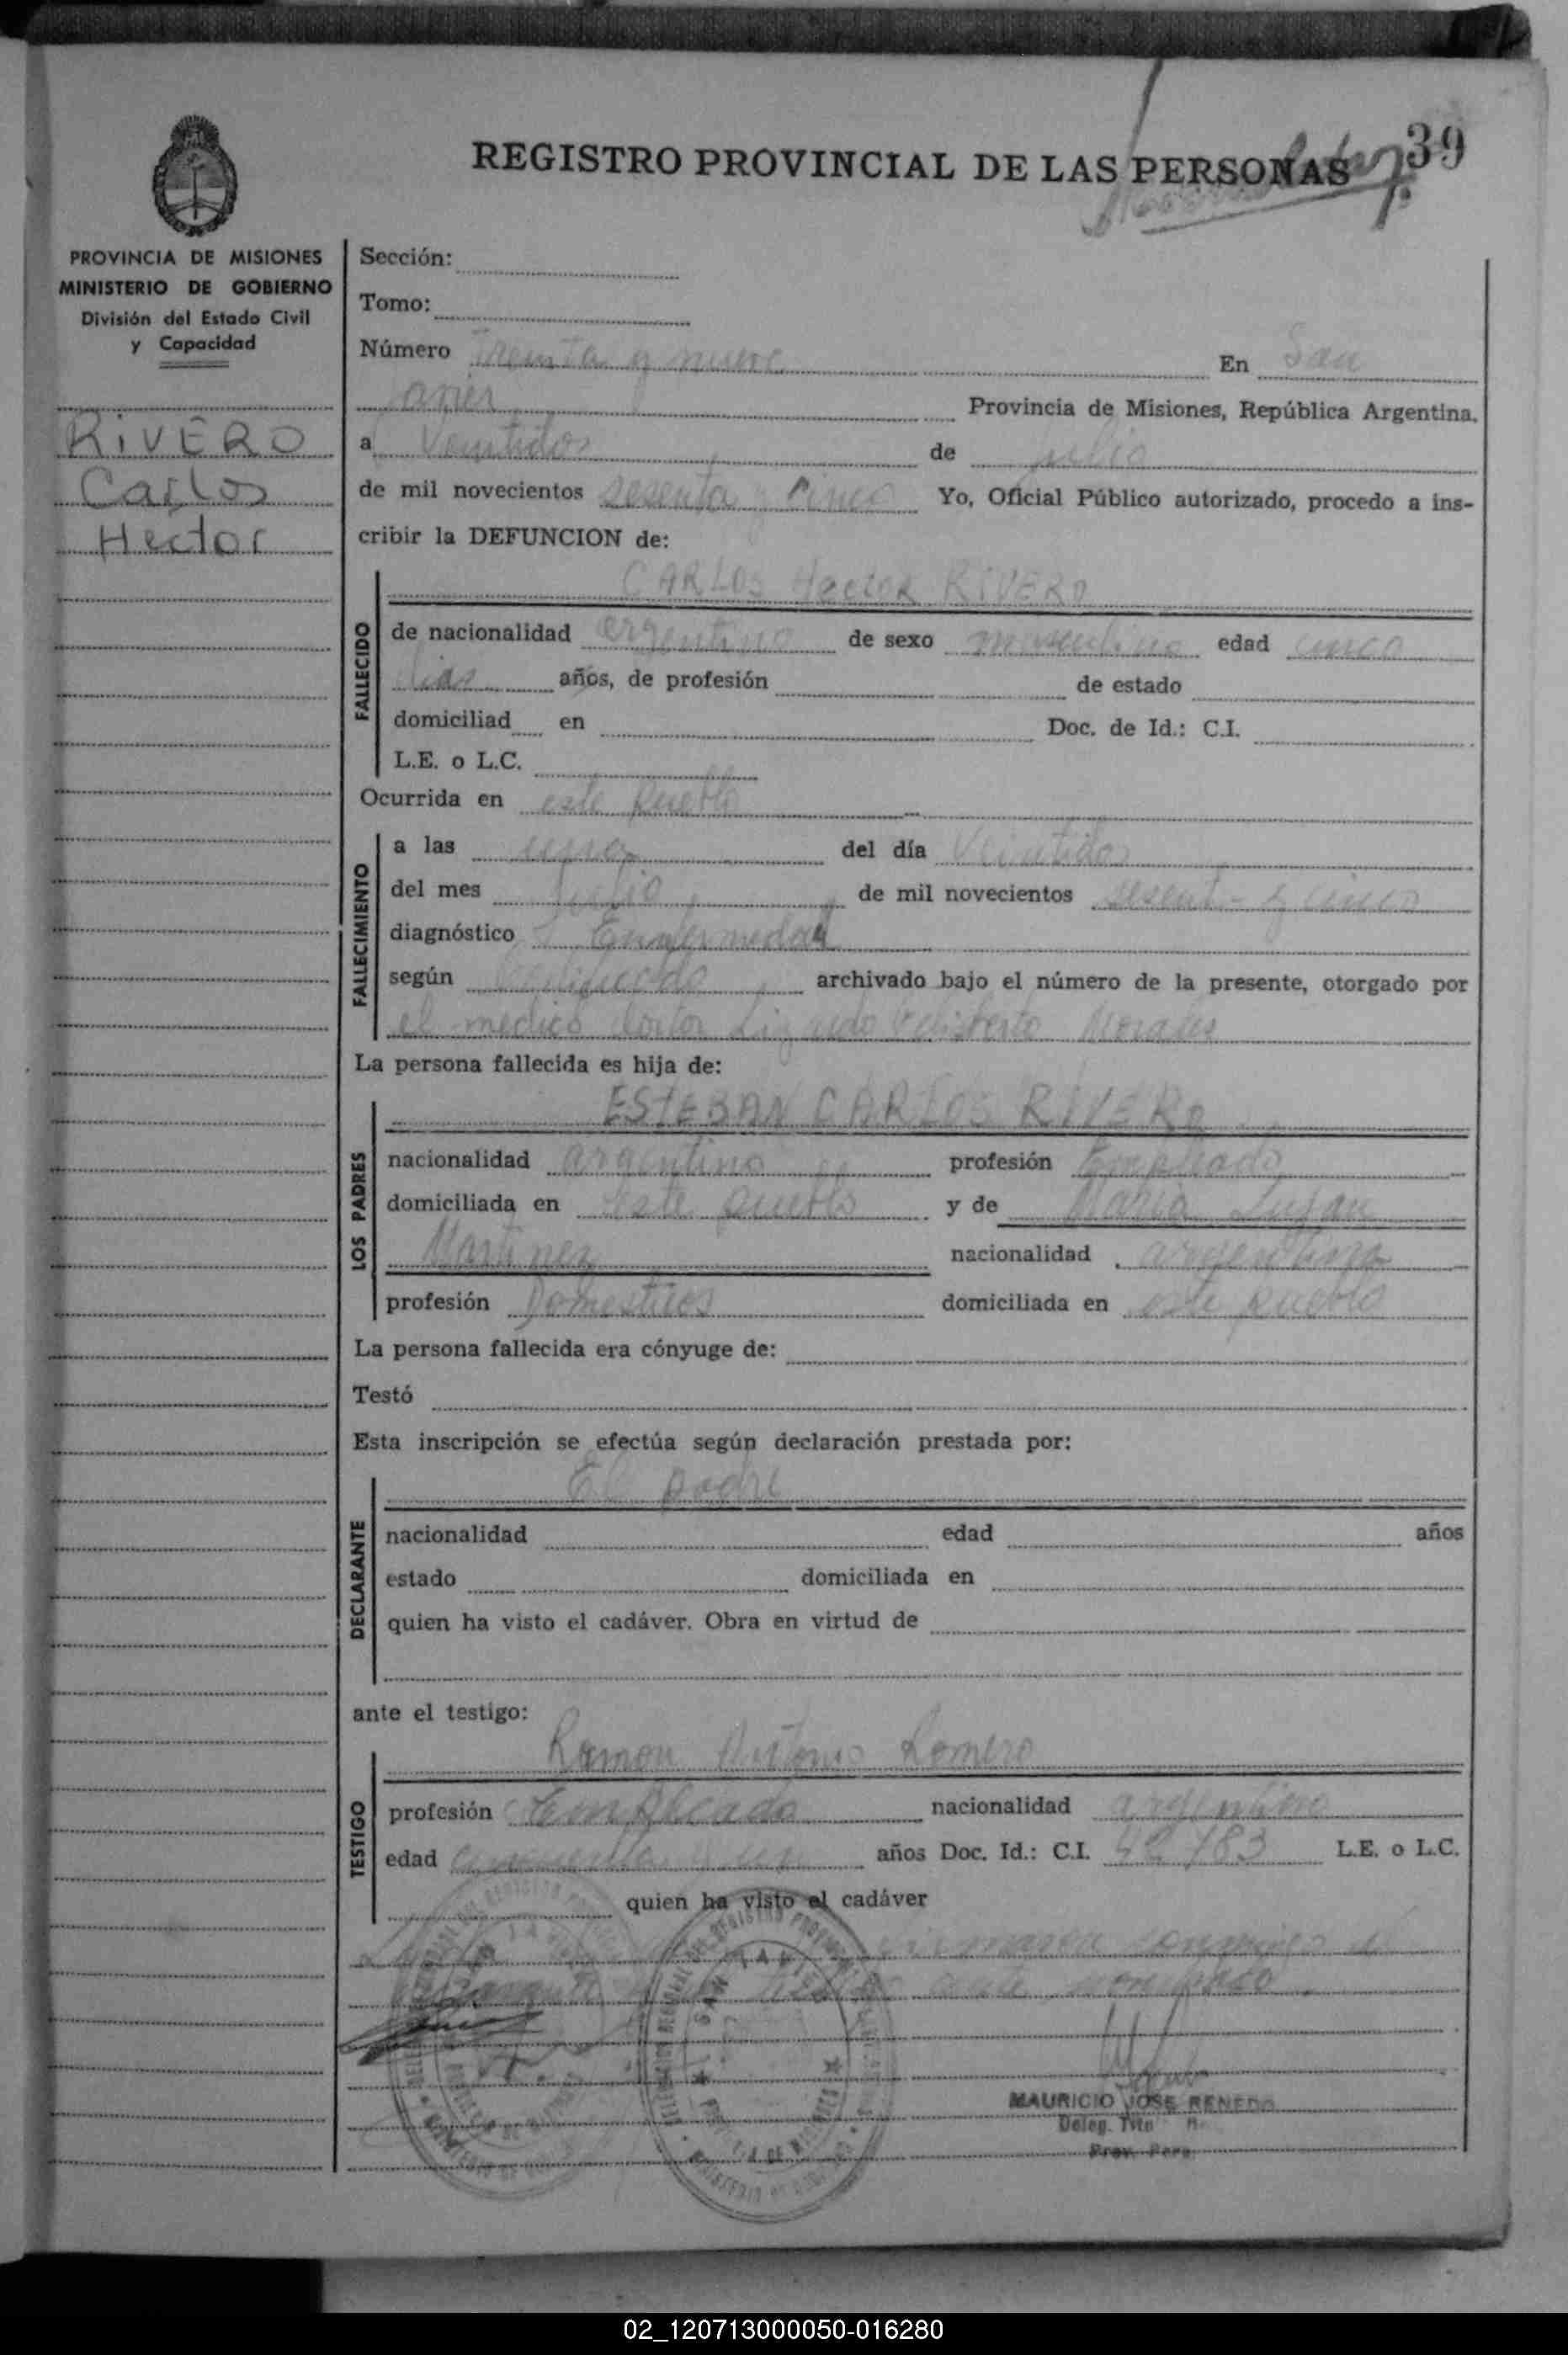 39
REGISTRO PROVINCIAL DE LAS PERSONAS
PROVINCIA DE MISIONES
MINISTERIO DE GOBIERNO
División del Estado Civil
y Capacidad
RIVERO
Carlos
Hector
Sección:
Tomo:
Número Treinta y nueve En San
Javier Provincia de Misiones, República Argentina,
a Veintidos de julio
de mil novecientos sesenta y cinco Yo, Oficial Público autorizado, procedo a ins-
cribir la DEFUNCION de:
CARLOS Hector RIVERO
FALLECIDO
de nacionalidad argentino de sexo masculino edad cinco
dias años, de profesión de estado
domiciliad en Doc. de Id.: C.I.
L.E. o L.C.
Ocurrida en este pueblo
FALLECIMIENTO
a las una del día Veintidos
del mes Julio de mil novecientos sesenta y cinco
diagnóstico Enfermedad
según certificado archivado bajo el número de la presente, otorgado por
el medico doctor Morales
La persona fallecida es hija de:
ESTEBAN CARLOS RIVERO
LOS PADRES
nacionalidad argentino profesión Empleado
domiciliada en este pueblo y de Maria Lujan
Martinez nacionalidad argentina
profesión Domesticos domiciliada en este pueblo
La persona fallecida era cónyuge de:
Testó
Esta inscripción se efectúa según declaración prestada por:
El padre
DECLARANTE
nacionalidad edad años
estado domiciliada en
quien ha visto el cadáver. Obra en virtud de
ante el testigo:
Ramon Antonio Romero
TESTIGO
profesión Empleado nacionalidad argentino
edad años Doc. Id.: C.I. L.E. o L.C.
quien ha visto el cadáver
MAURICIO JOSE RENEDO
Deleg.
Prov. Pers.
02_120713000050-016280